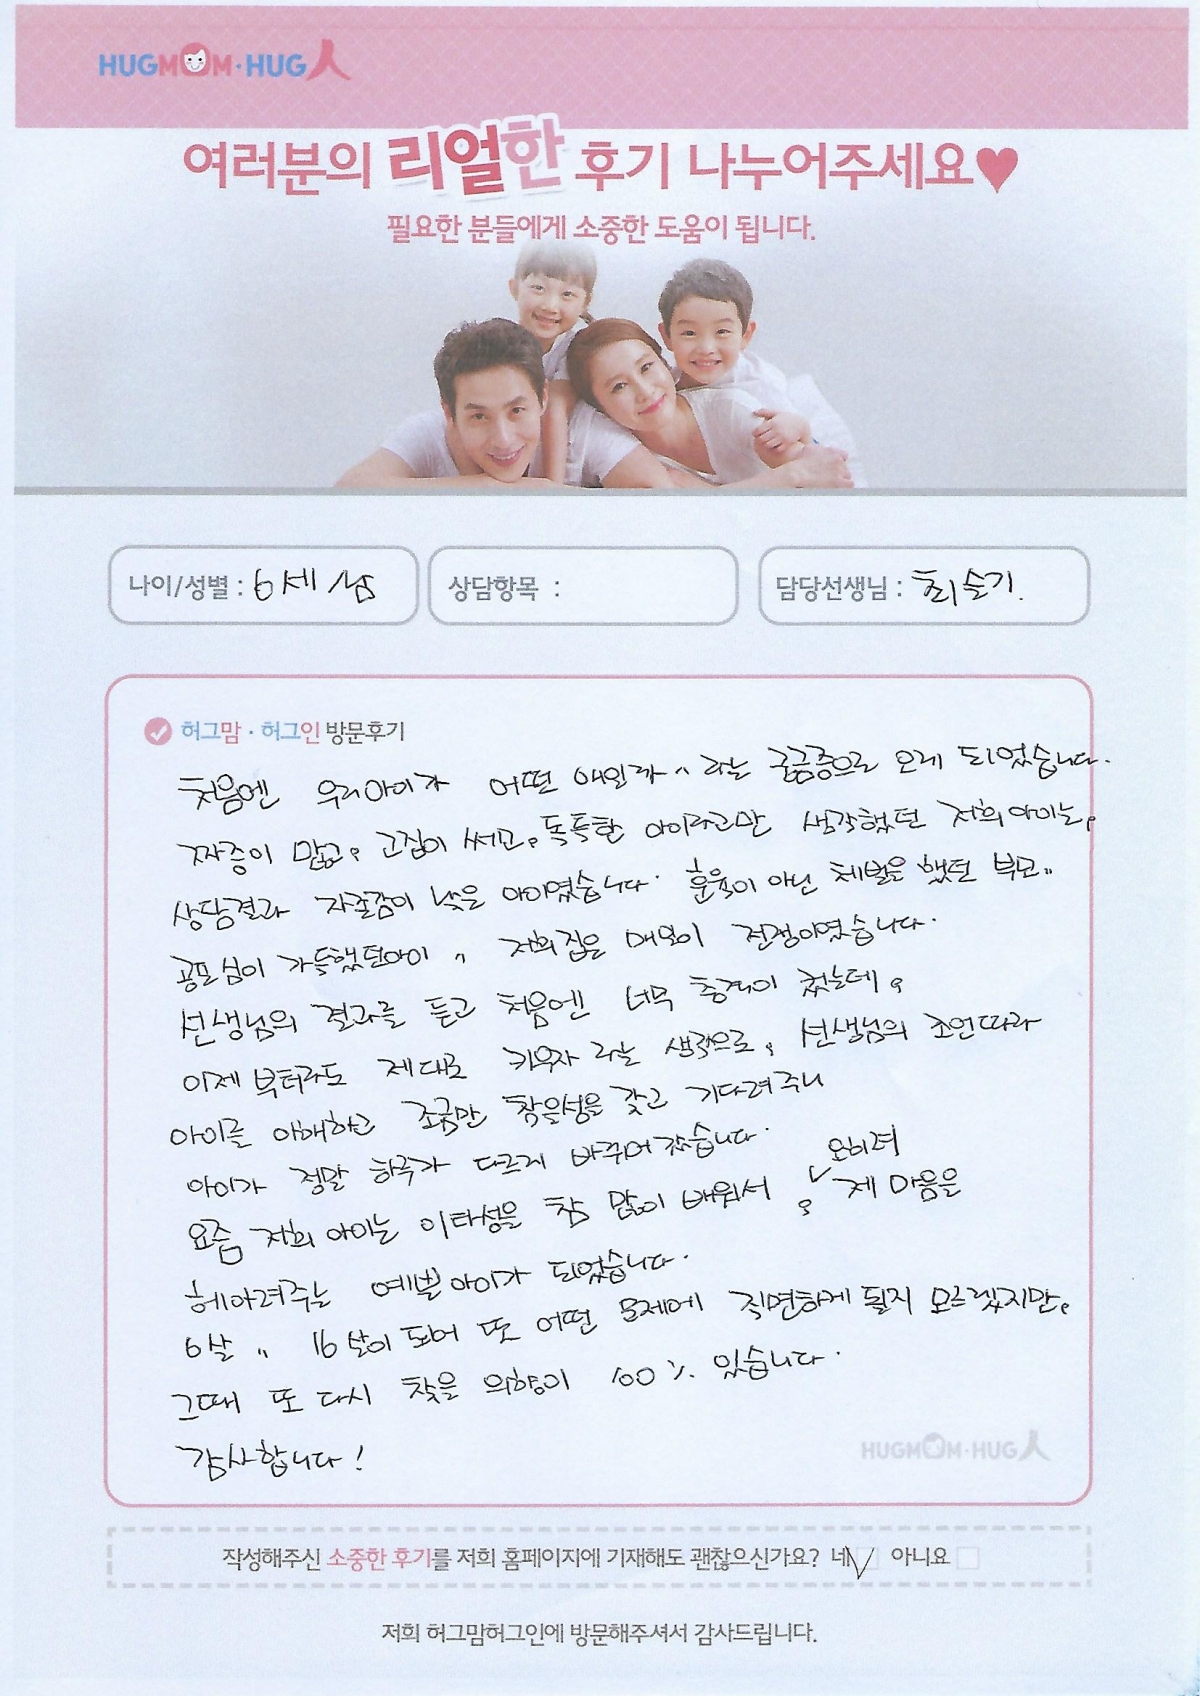 HUGMOM·HUG人
여러분의 리얼한 후기 나누어주세요♥
필요한 분들에게 소중한 도움이 됩니다.
나이/성별 : 6세 남
상담항목 :
담당선생님 : 최슬기.
허그맘·허그인 방문후기
처음엔 우리아이가 어떤 애일까.. 라는 궁금증으로 오게 되었습니다.
짜증이 많고, 고집이 쎄고, 독특한 아이라고만 생각했던 저희아이는,
상담결과 자존감이 낮은 아이였습니다. 훈육이 아닌 체벌을 했던 부모..
공포심이 가득했던아이.. 저희집은 매일이 전쟁이였습니다.
선생님의 결과를 듣고 처음엔 너무 충격이 컸는데,
이제 부터라도 제대로 키우자 라는 생각으로, 선생님의 조언따라
아이를 이해하고 조금만 참을성을 갖고 기다려주니
아이가 정말 하루가 다르게 바뀌어갔습니다.
요즘 저희 아이는 이타성을 참 많이 배워서, 오히려 제 마음을
헤아려주는 예쁜아이가 되었습니다.
6살.. 16살이 되어 또 어떤 문제에 직면하게 될지 모르겠지만,
그때 또 다시 찾을 의향이 100% 있습니다.
감사합니다!
HUGMOM·HUG人
작성해주신 소중한 후기를 저희 홈페이지에 기재해도 괜찮으신가요? 네 아니요
저희 허그맘허그인에 방문해주셔서 감사드립니다.